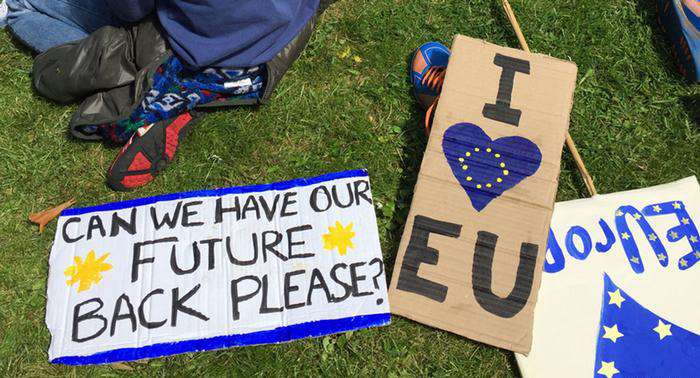 CAN WE HAVE OUR
FUTURE
BACK PLEASE?
I
EU
EUrop